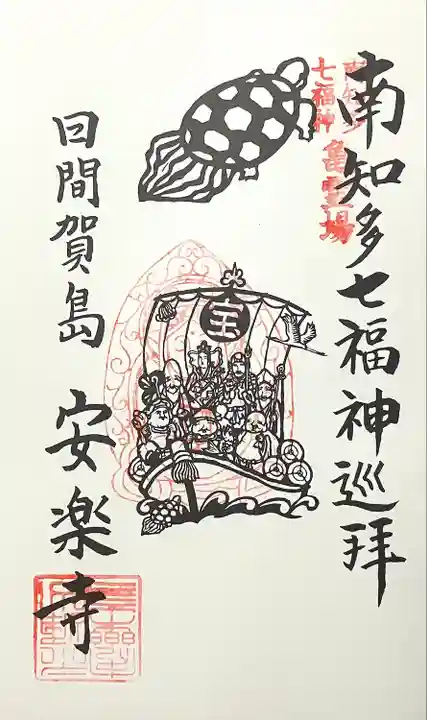 南知多七福神巡拝
南知多
七福神
亀霊場
宝
日間賀島 安楽寺